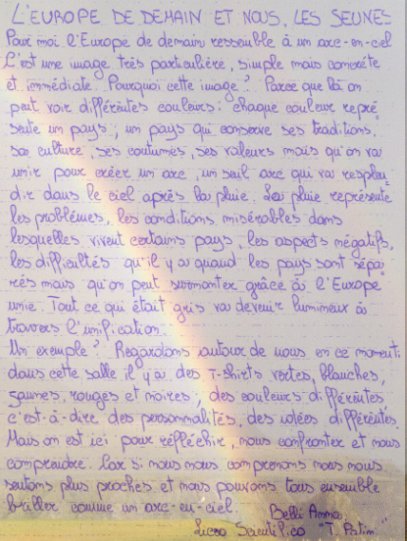 L'EUROPE DE DEMAIN ET NOUS, LES JEUNES
Pour moi l'Europe de demain ressemble à un arc-en-ciel
C'est une image très particulière, simple mais concrète
et immédiate. Pourquoi cette image? Parce que là on
peut voir différentes couleurs: chaque couleur repré
sente un pays, un pays qui conserve ses traditions,
sa culture, ses coutumes, ses valeurs mais qu'on va
unir pour créer un arc, un seul arc qui va resplen
dir dans le ciel après la pluie. La pluie représente
les problèmes, les conditions misérables dans
lesquelles vivent certains pays, les aspects négatifs,
les difficultés qu'il y a quand les pays sont sépa
rés mais qu'on peut surmonter grâce à l'Europe
unie. Tout ce qui était gris va devenir lumineux à
travers l'unification.
Un exemple? Regardons autour de nous en ce moment:
dans cette salle il y a des T-shirts vertes, blanches,
jaunes, rouges et noires, des couleurs différentes
c'est-à-dire des personnalités, des idées différentes.
Mais on est ici pour réfléchir, nous confronter et nous
comprendre. Car si nous nous comprenons nous nous
sentons plus proches et nous pouvons tous ensemble
briller comme un arc-en-ciel. Belli Anna
Liceo Scientifico "T.